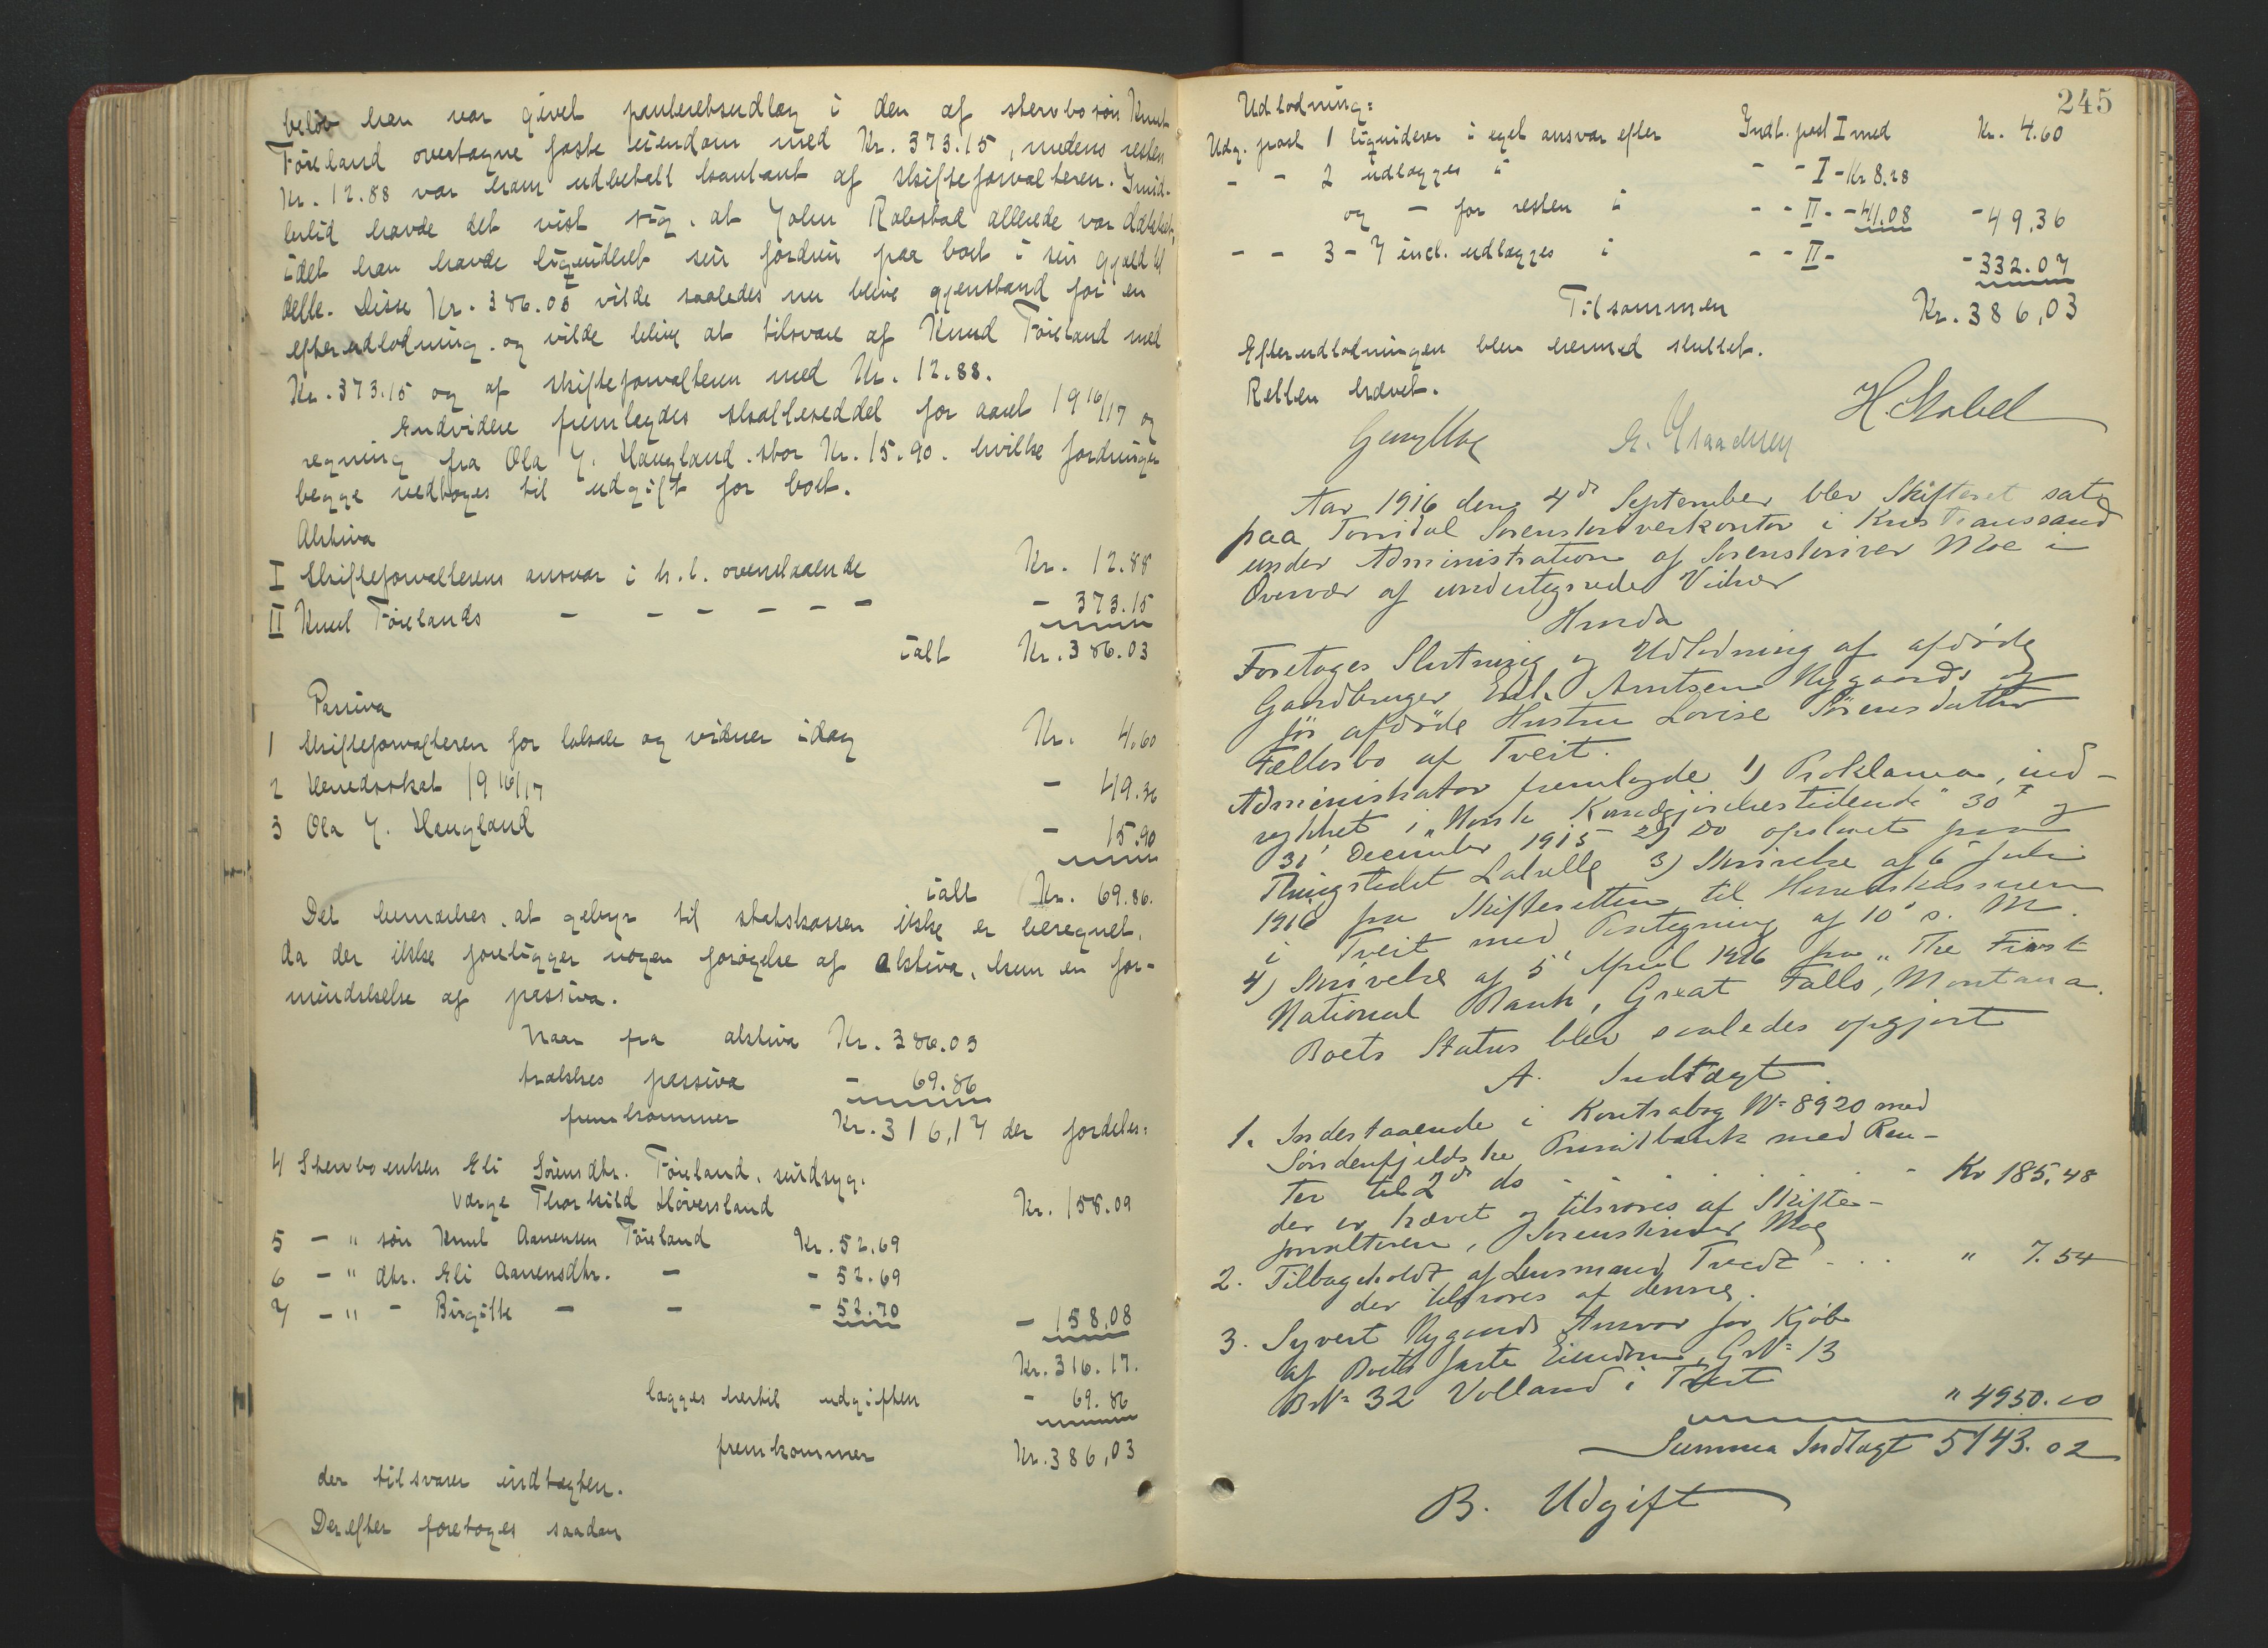 beløb han var givet panteretsudlæg i den af stervbo søn Knut
Føreland overtagne faste eiendom med Kr. 373.15, medens resten
Kr. 12.88 var ham udbetalt kontant af skifteforvalteren. Imid-
lertid havde det vist sig, at John Rabstad allerede var dækket,
idet han havde liquideret sin fordrin paa boet i sin gjæld til
dette. Disse Kr. 386.03 vilde saaledes nu blive gjenstand for en
efterudlodning, og vilde blive at tilsvare af Knud Føreland med
Kr. 373.15 og af skifteforvalteren med Kr. 12.88.
Endvidere fremlagdes skatteseddel for aaret 1916/17 og
regning fra Ola Y. Haugland, stor Kr. 15.90, hvilke fordringer
begge vedtoges til udgift for boet.
Aktiva
I Skifteforvalterens ansvar i h. t. ovenstaaende Kr. 12.88
II Knut Førelands - - - - - - - 373.15
ialt Kr. 386.03
Passiva
1 Skifteforvalteren for lokale og vidner idag Kr. 4.60
2 Herredsskat 1916/17 - 49.36
3 Ola Y. Haugland - 15.90
ialt Kr. 69.86.
Det bemærkes, at gebyr til statskassen ikke er beregnet,
da der ikke foreligger nogen forøgelse af aktiva, kun en for-
mindskelse af passiva.
Naar fra aktiva Kr. 386.03
trækkes passiva - 69.86
fremkommer Kr. 316,17 der fordeles:
4 Stervboenken Eli Sørensdtr. Føreland, sindsyg.
Værge Thorkild Høversland Kr. 158.09
5 - " søn Knut Aanensen Føreland Kr. 52.69
6 - " dtr. Eli Aanensdtr. - - 52.69
7 - " - Birgitte - - - 52.70 - 158,08
Kr. 316.17.
lægges hertil udgiften - 69.86
fremkommer Kr. 386,03
der tilsvarer indtægten.
Derefter foretoges saadan
245
Udlodning:
Udg. post 1 liquiderer i eget ansvar efter Indt. post I med Kr. 4.60
- - 2 udlægges i - - I - Kr 8.28
og - for resten i - - II - - 41.08 - 49,36
- - 3 - 7 incl. udlægges i - - II - - 332.07
Tilsammen Kr. 386,03
Efterudlodningen blev hermed sluttet.
Retten hævet.
H. Stabel
Aar 1916 den 4de September blev Skifteret sat
paa Torridal Sorenskriverkontor i Kristianssand
under Administration af Sorenskriver Moe i
Overvær af undertegnede Vidner
Hvorda
Foretoges Slutning og Udlodning af afdøde
Gaardbruger Emil Arntsen Nygaards og
før afdøde Hustru Lovise Sørensdatter
Fællesbo af Tveit.
Administrator fremlagde 1) Proklama, ind-
rykket i "Norsk Kundgjørelsestidende" 30' og
31' December 1915 2) do opslaaet paa
Thingstedet 3) Skrivelse af 6' Juli
1916 fra Skifteretten til Herredskassereren
i Tveit med Paategning af 10' s. M.
4) Skrivelse af 5' April 1916 fra "The First
National Bank, Great Falls, Montana.
Boets Status blev saaledes opgjort
A. Indtægt.
1. Indestaaende i Kontrabog No 8920 med
Søndenfjeldske Privatbank med Ren-
ter til 2de ds - - - - Kr 185,48
der er hævet og tilsvares af Skifte-
forvalteren, Sorenskriver Moe
2. Tilbageholdt af Lensmand Tvedt - . . . " 7.54
der tilsvares af denne.
3. Syvert Nygaards Ansvar for Kjøb
af Boets faste Eiendom, GNo 13
BNo 32 Volland i Tveit " 4950.00
Summa Indtægt 5143.02
B. Udgift